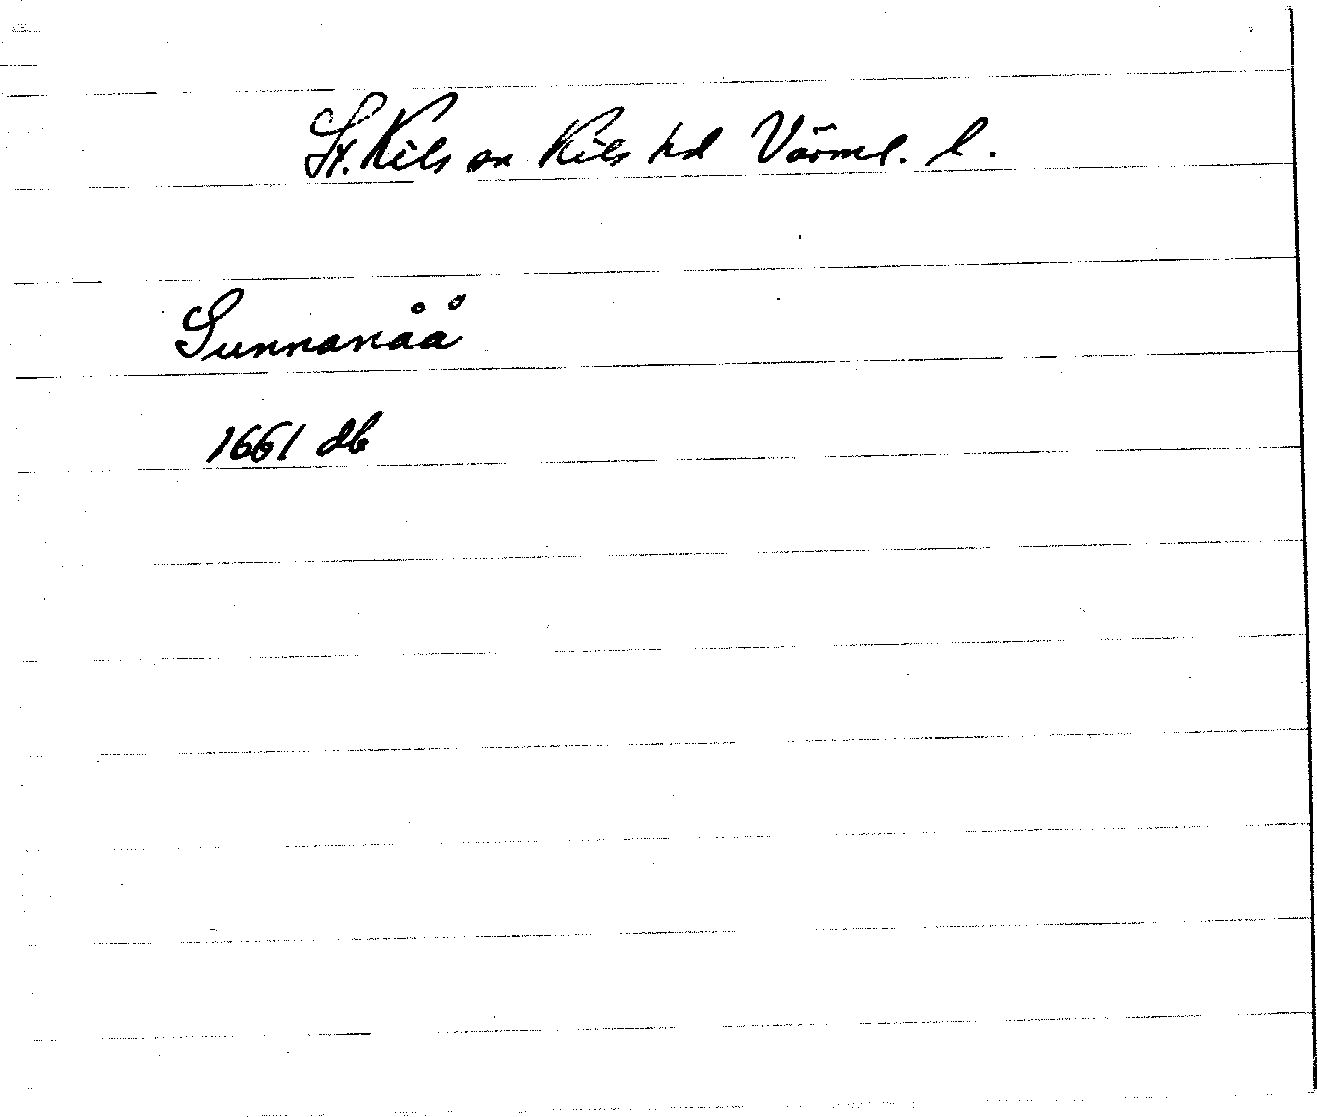 St. Kils sn Kils hd Värml. l.
Sunnanåå
1661 db